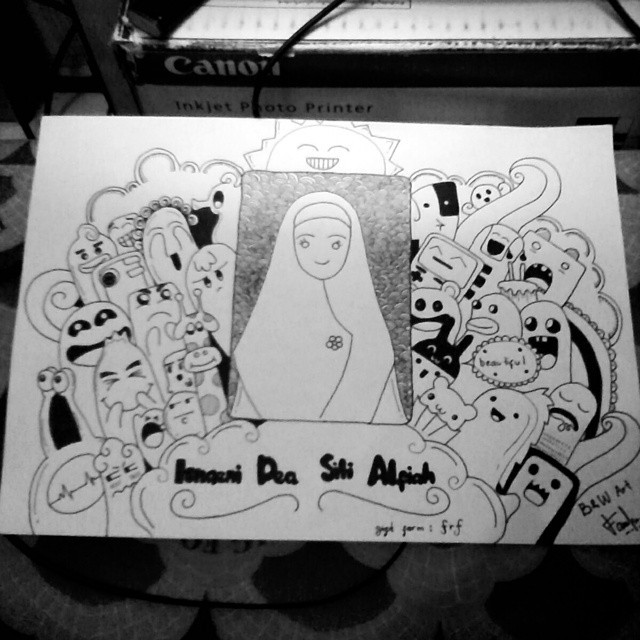 Canon
Inkjet Photo Printer
beautiful
Ismaeni Dea Siti Alpiah
B&W Art